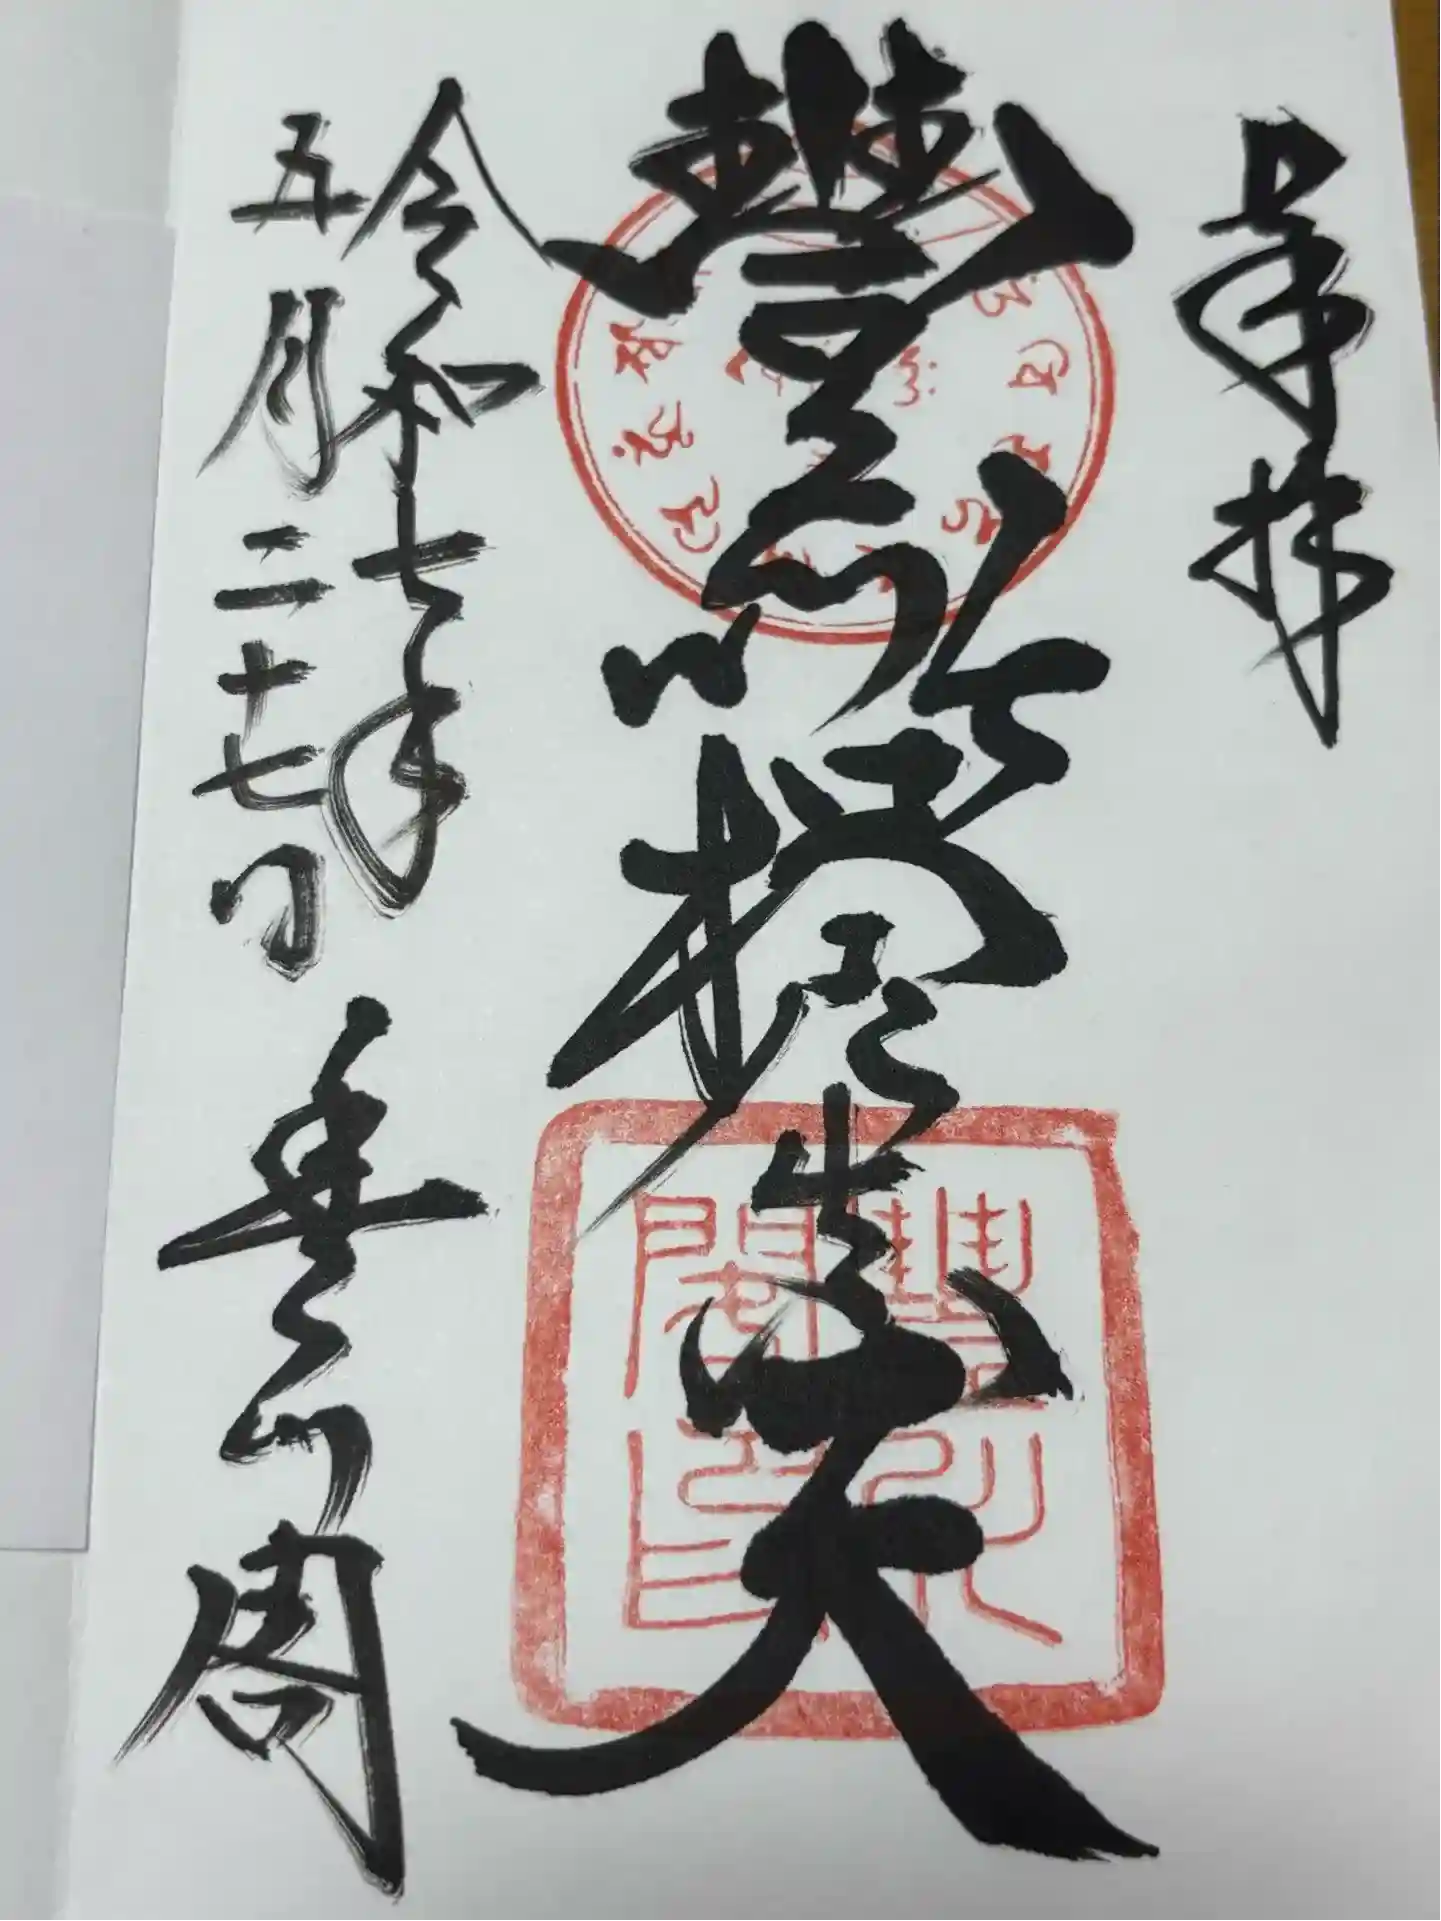 奉拝
豐川吒枳尼眞天
豐川閣印
令和七年
五月二十七日
豊川閣